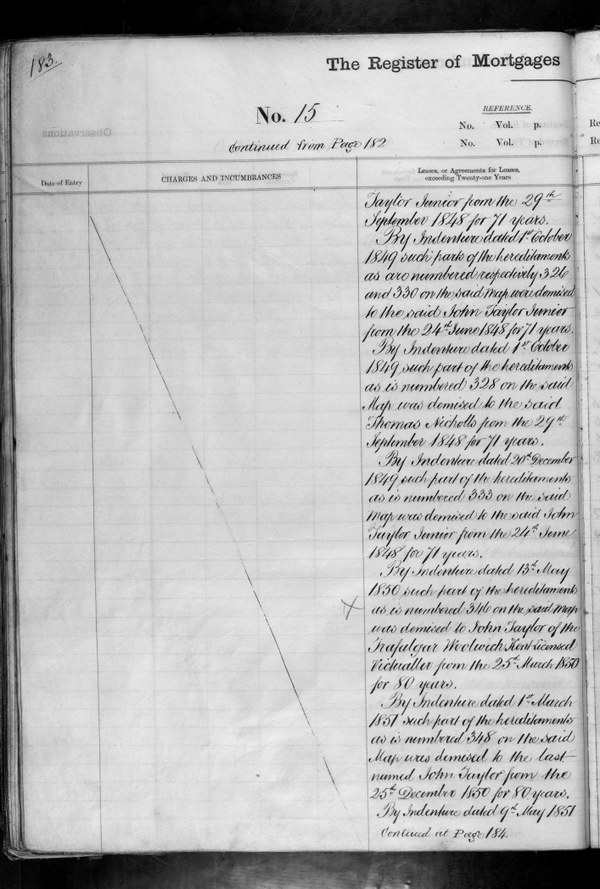 183.
The Register of Mortgages
No. 15
REFERENCE.
No. Vol. p.
Continued from Page 182
No. Vol. p.
Observations
Date of Entry
CHARGES AND INCUMBRANCES
Leases, or Agreements for Leases,
exceeding Twenty-one Years
Taylor Junior from the 29th
September 1848 for 71 years.
By Indenture dated 1st October
1849 such parts of the hereditaments
as are numbered respectively 326
and 330 on the said Map were demised
to the said John Taylor Junior
from the 24th June 1848 for 71 years.
By Indenture dated 1st October
1849 such part of the hereditaments
as is numbered 328 on the said
Map was demised to the said
Thomas Nicholls from the 29th
September 1848 for 71 years.
By Indenture dated 20th December
1849 such part of the hereditaments
as is numbered 333 on the said
Map was demised to the said John
Taylor Junior from the 24th June
1848 for 71 years.
By Indenture dated 13th May
1850 such part of the hereditaments
as is numbered 346 on the said Map
was demised to John Taylor of the
Trafalgar Woolwich Kent Licensed
Victualler from the 25th March 1850
for 80 years.
By Indenture dated 1st March
1851 such part of the hereditaments
as is numbered 348 on the said
Map was demised to the last
named John Taylor from the
25th December 1850 for 80 years.
By Indenture dated 9th May 1851
Continued at Page 184.